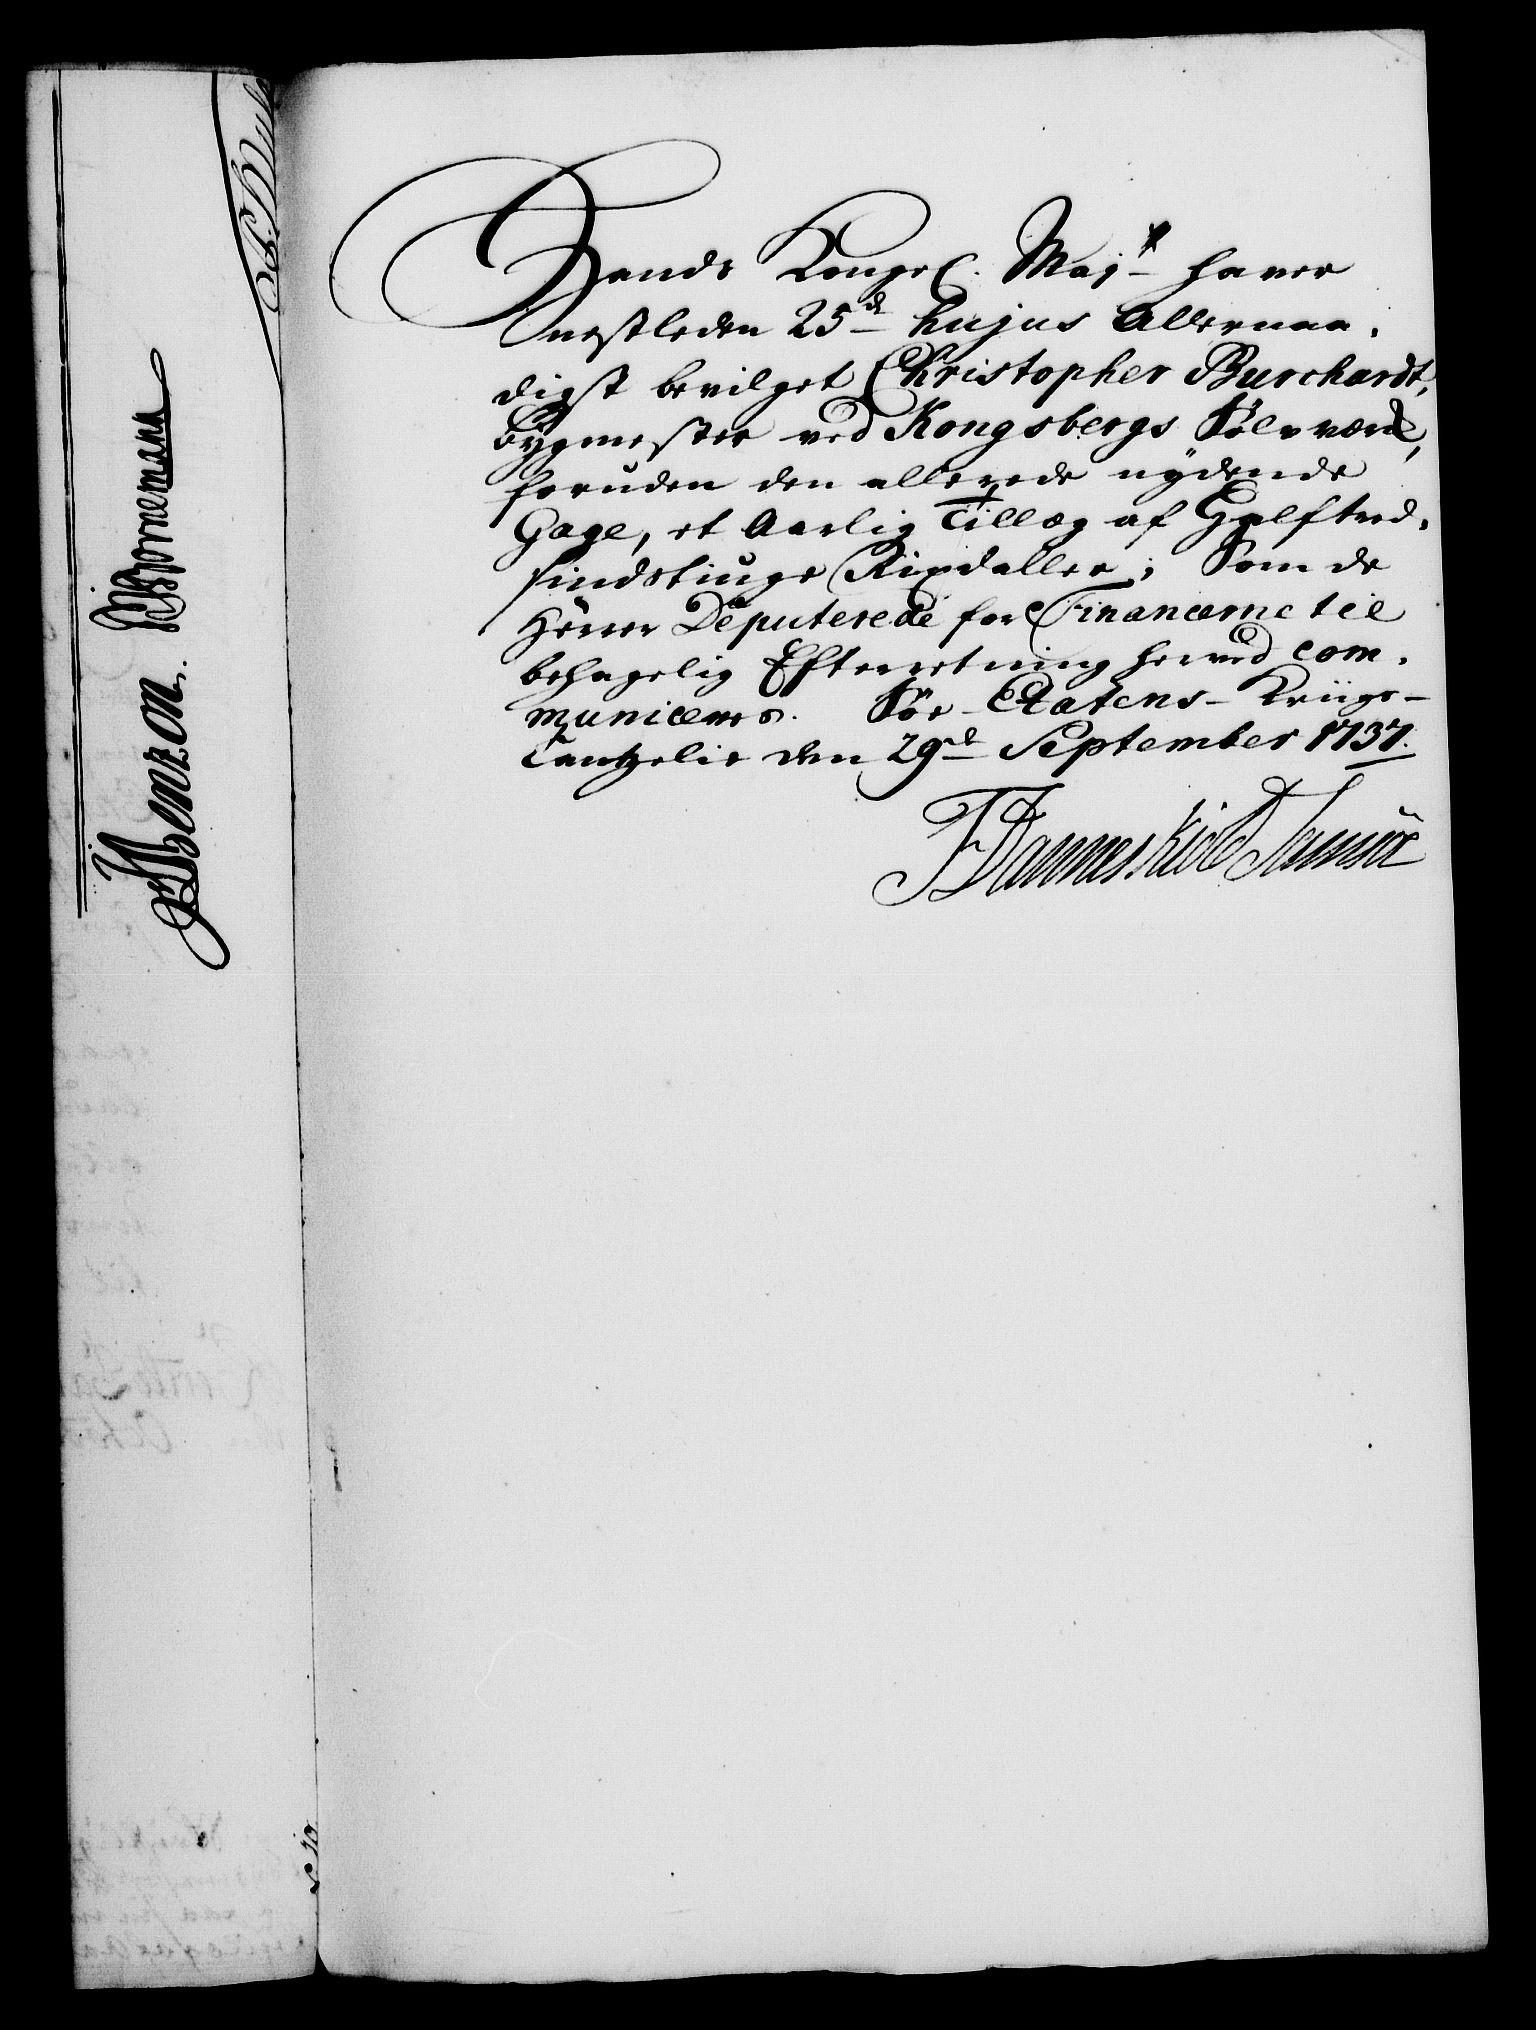 Hands Kongel. Maj:t haver
nestleden 25de hujus Allernaa-
digst bevilget Christopher Burchardt,
Bygmester ved Kongsbergs Sölvværk,
foruden den allerede nydende
Gage, et Aarlig Tillæg af Halftred-
sindstiuge Rixdaller; Som de
Herrer Deputerede for Financerne til
behagelig Efterretning herved com-
municeres. Söe-Etatens-Kriigs-
Cantzelie den 29de September 1737.
F Danneskiold Samsöe
Benzon. Bornemann